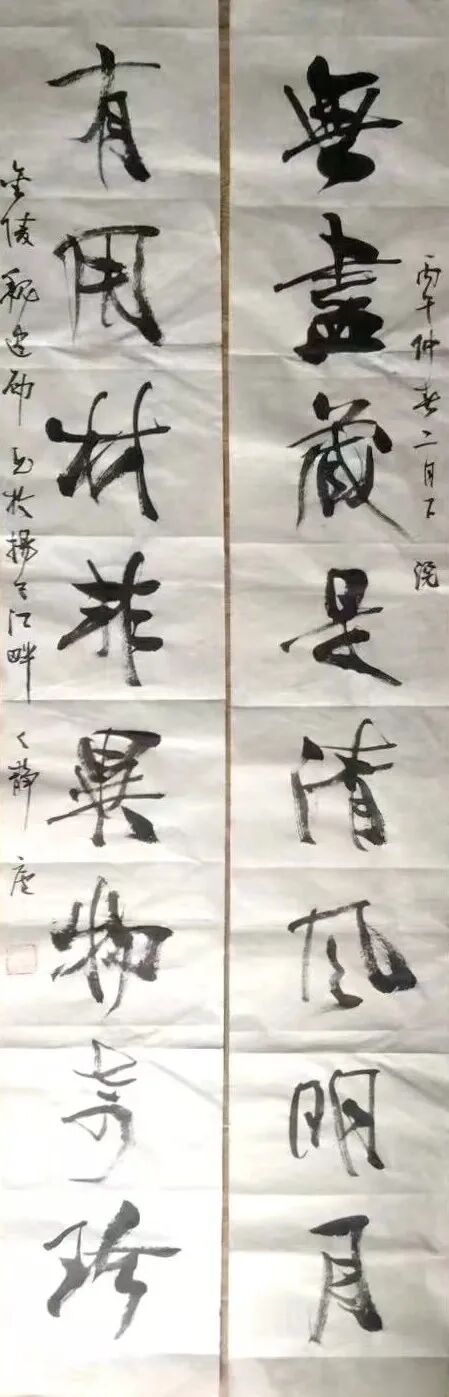 無盡藏是清風明月
丙午仲春二月下浣
有用材非異物奇珍
金陵魏 書於揚子江畔 静廬